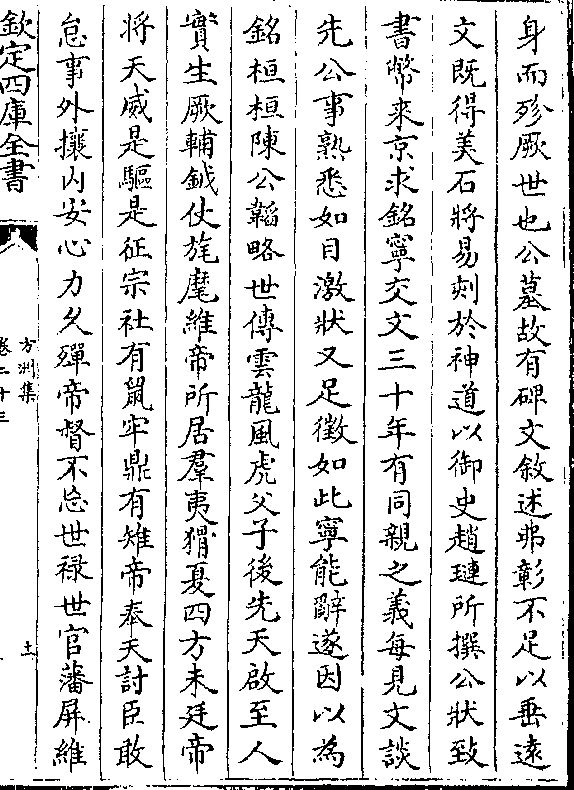 身而殄厥世也公墓故有碑文敘述弗彰不足以垂遠
文既得美石將易刻於神道以御史趙璉所撰公狀致
書幣來京求銘寧交文三十年有同親之義每見文談
先公事熟悉如目激狀又足徵如此寧能辭遂因以為
銘桓桓陳公韜略世傳雲龍風虎父子後先天啟至人
實生厥輔鉞仗旄麾維帝所居羣夷猾夏四方未廷帝
将天威是驅是征宗社有鼠牢鼎有雉帝奉天討臣敢
怠事外攘内安心力久殫帝督不忘世禄世官藩屏維
欽定四庫全書
方洲集
卷二十三
土